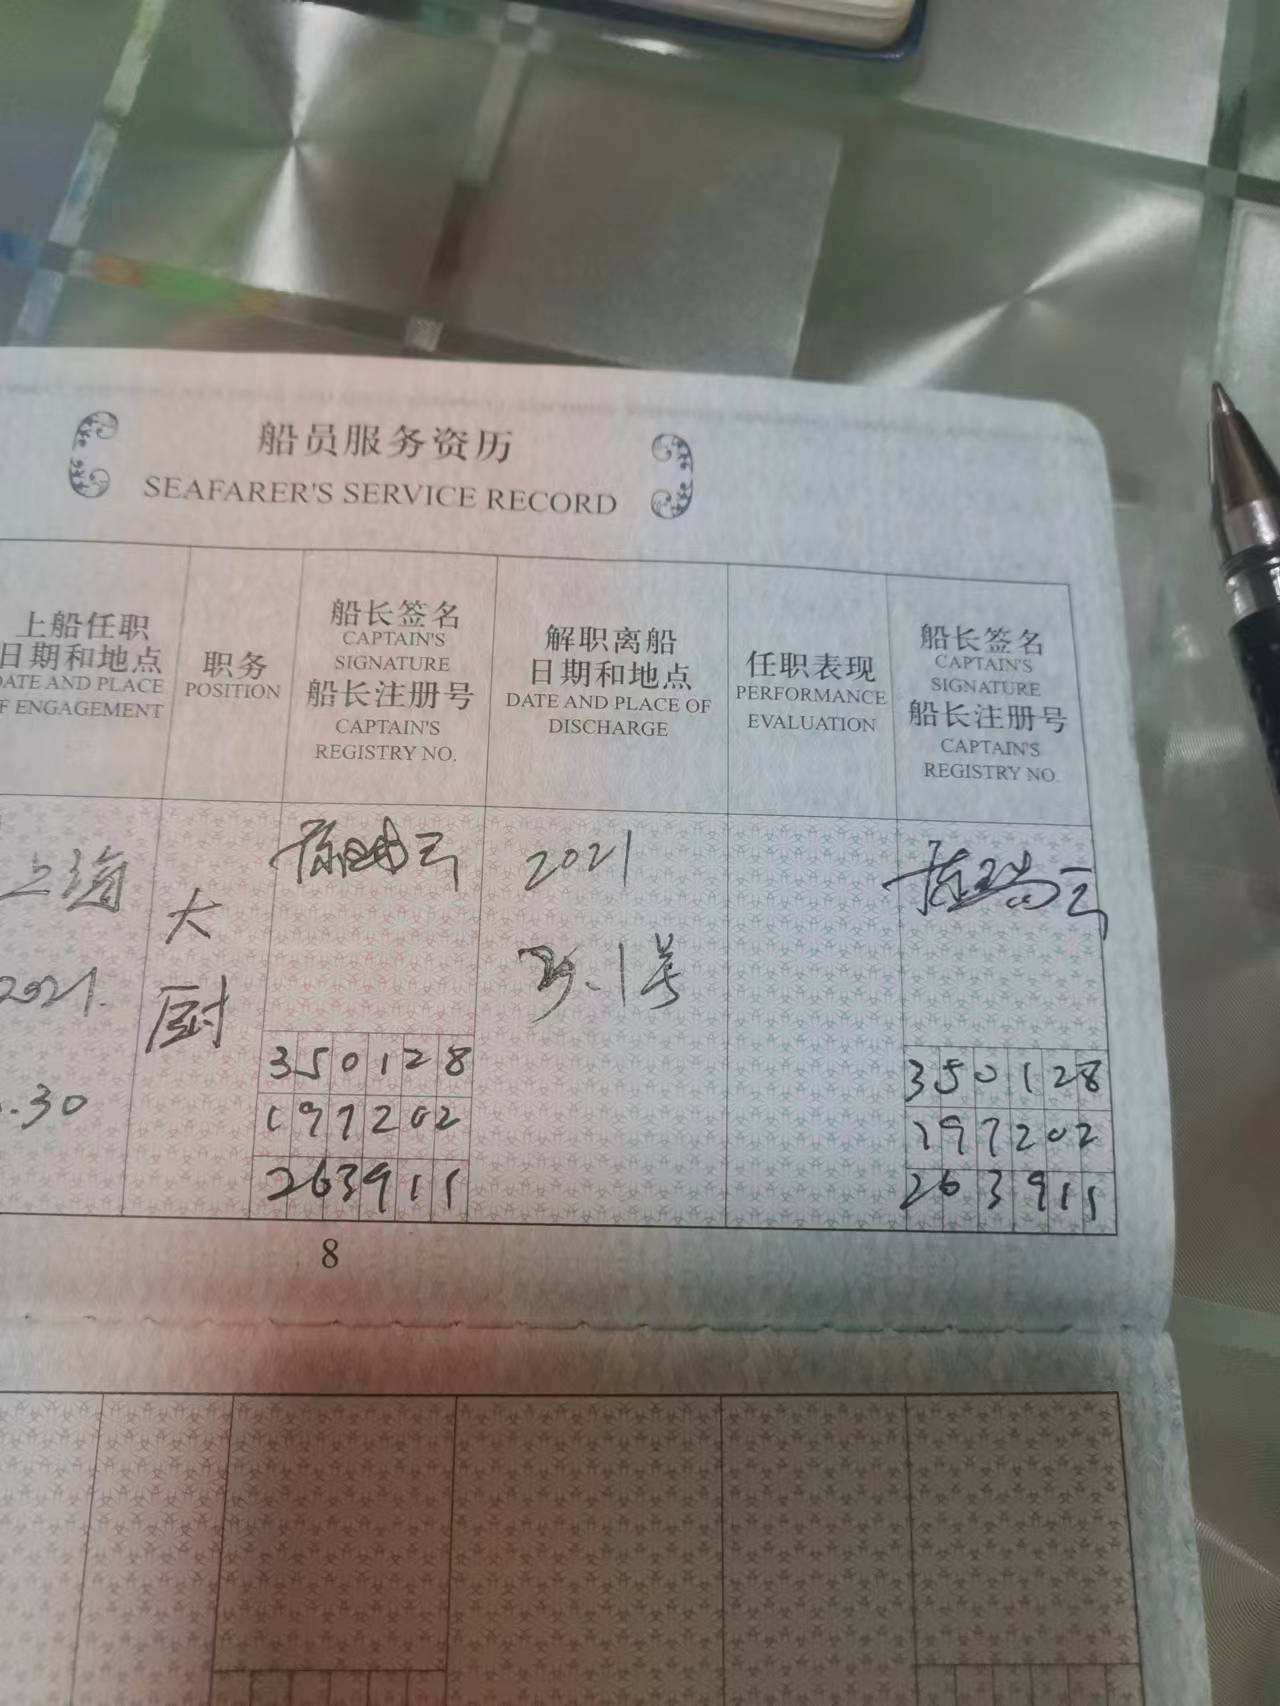 船员服务资历
SEAFARER'S SERVICE RECORD
上船任职
日期和地点
DATE AND PLACE
F ENGAGEMENT
职务
POSITION
船长签名
CAPTAIN'S
SIGNATURE
船长注册号
CAPTAIN'S
REGISTRY NO.
解职离船
日期和地点
DATE AND PLACE OF
DISCHARGE
任职表现
PERFORMANCE
EVALUATION
船长签名
CAPTAIN'S
SIGNATURE
船长注册号
CAPTAIN'S
REGISTRY NO.
上海
2021.
.30
大
厨
350128
197202
263911
2021
.1号
陈瑞云
350128
197202
263911
8